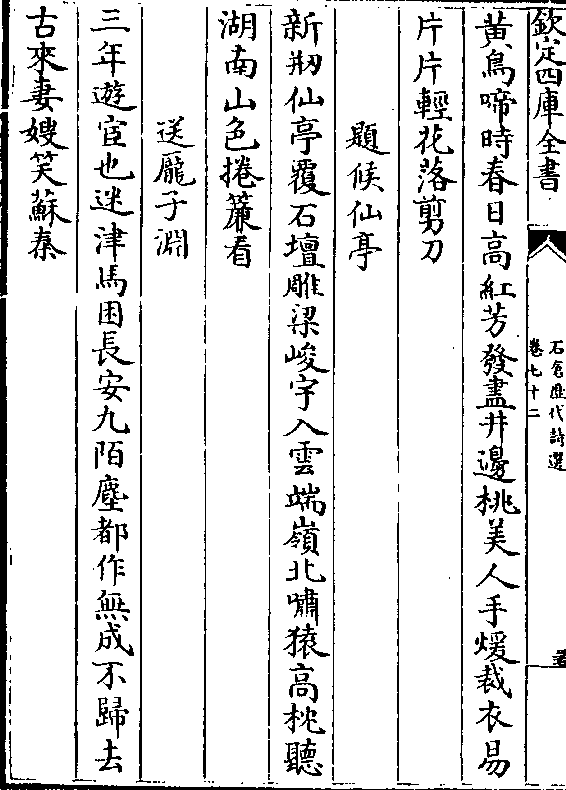 欽定四庫全書
石倉歷代詩選
卷七十二
黃鳥啼時春日高紅芳發盡井邊桃美人手煖裁衣易
片片輕花落剪刀
題候仙亭
新剏仙亭覆石壇雕梁峻宇入雲端嶺北嘯猿高枕聽
湖南山色捲簾看
送龎子淵
三年遊宦也迷津馬困長安九陌塵都作無成不歸去
古來妻嫂笑蘇秦